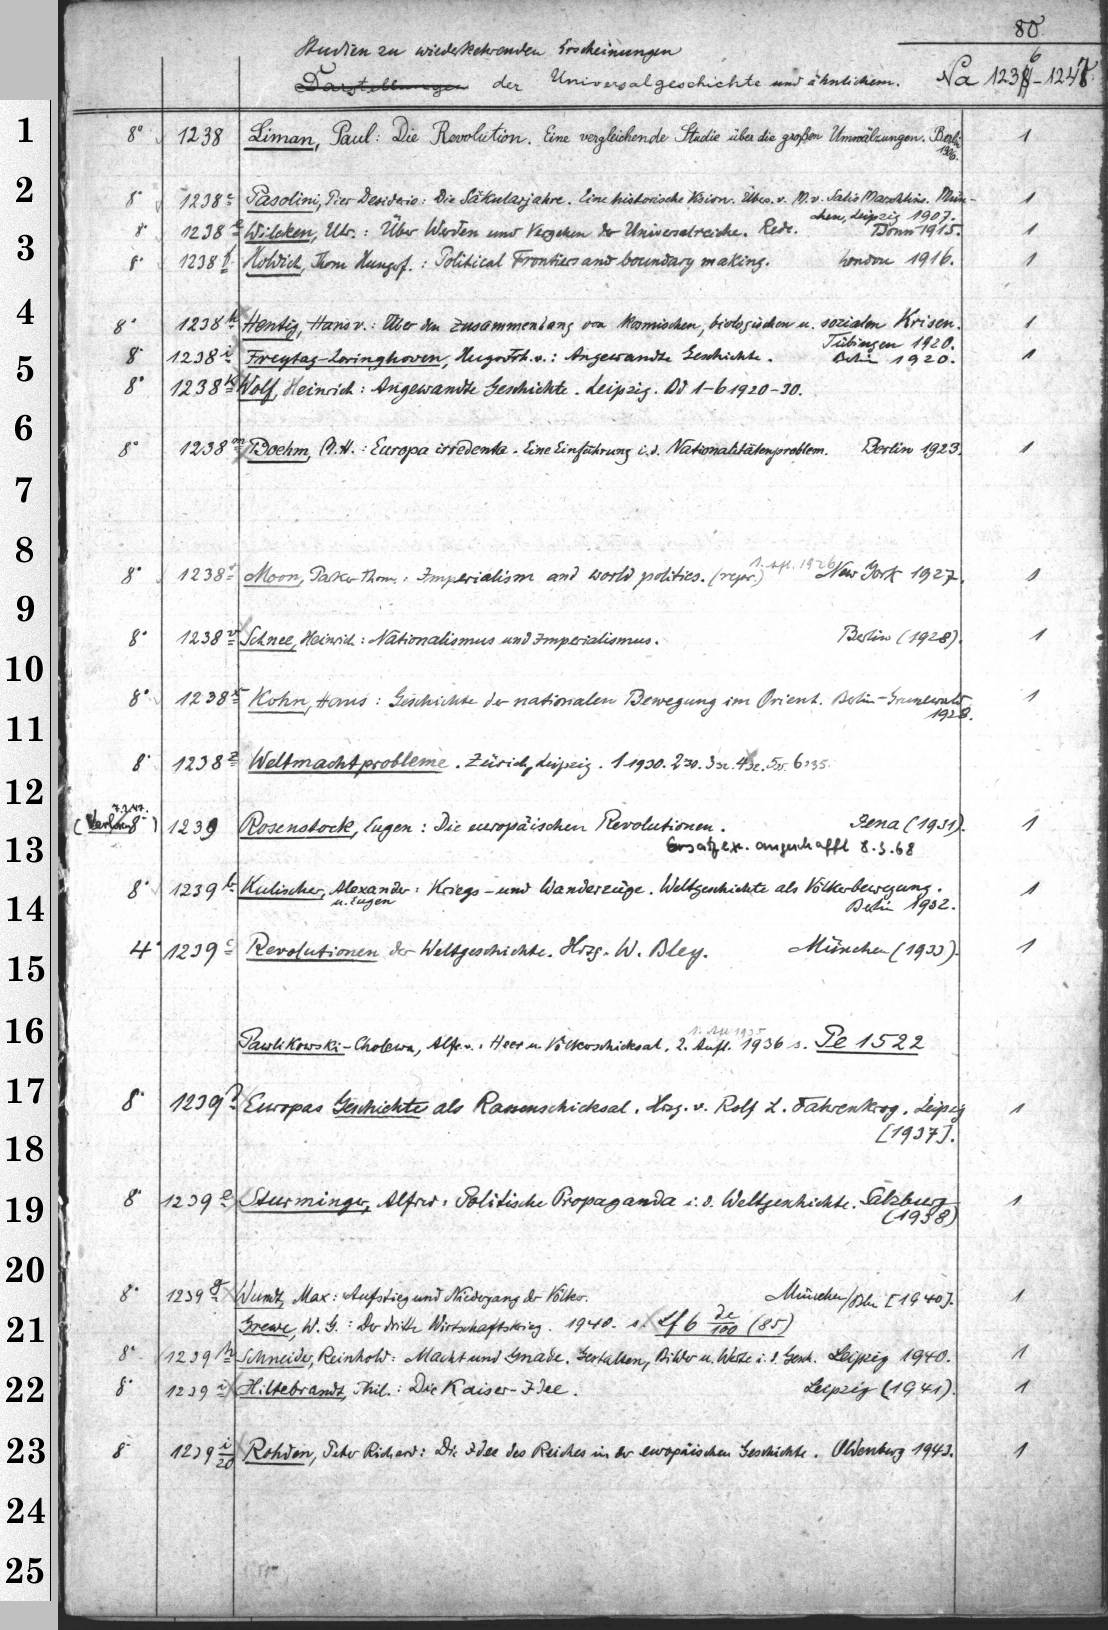 80
Studien zu wiederkehrenden Erscheinungen
Darstellungen der Universalgeschichte und ähnlichem. Na 1238-1247.
1
8° 1238 Liman, Paul: Die Revolution. Eine vergleichende Studie über die großen Umwälzungen. Berlin 1
1906.
2
8° 1238 c Pasolini, Pier Desiderio: Die Säkularjahre. Eine historische Vision. Übers. v. M. v. Salis Marschlins. Mün- 1
chen, Leipzig 1907.
8° 1238 Wilcken, Ulr.: Über Werden und Vergehen der Universalreiche. Rede. Bonn 1915. 1
3
8° 1238 f Holdich, Thom Hungf.: Political Frontiers and boundary making. London 1916. 1
4
8° 1238 h Hentig, Hans v.: Über den Zusammenhang von kosmischen, biologischen u. sozialen Krisen. 1
Tübingen 1920.
8° 1238 i Freytag-Loringhoven, Hugo Frh. v.: Angewandte Geschichte. Berlin 1920. 1
5
8° 1238 k Wolf, Heinrich: Angewandte Geschichte. Leipzig. Bd 1-6 1920-30.
6
8° 1238 m Boehm, M. H.: Europa irredenta. Eine Einführung i. d. Nationalitätenproblem. Berlin 1923. 1
7
8
1. Apl. 1926
8° 1238 Moon, Parker Thom.: Imperialism and world politics. (repr.) New York 1927. 1
9
8° 1238 v Schnee, Heinrich: Nationalismus und Imperialismus. Berlin (1928). 1
10
8° 1238 x Kohn, Hans: Geschichte der nationalen Bewegung im Orient. Berlin-Grunewald 1
1928.
11
8° 1238 z Weltmachtprobleme. Zürich, Leipzig. 1 1930. 2 30. 3 32. 4 32. 5 6 35.
12
7.2.47.
(Verloren 8°) 1239 Rosenstock, Eugen: Die europäischen Revolutionen. Jena (1931). 1
13
Ersatzex. angeschafft 8.3.68
8° 1239 b Kulischer, Alexander: Kriegs- und Wanderzüge. Weltgeschichte als Völkerbewegung. 1
u. Eugen
14
Berlin 1932.
4° 1239 c Revolutionen der Weltgeschichte. Hrsg. W. Bley. München (1933). 1
15
16
1. Afl 1935
Pawlikowski-Cholewa, Alfr. v.: Heer u. Völkerschicksal. 2. Aufl. 1936 s. Pe 1522
17
8° 1239 Europas Geschichte als Rassenschicksal. Hrsg. v. Rolf L. Fahrenkrog. Leipzig 1
[1937].
18
19
8° 1239 e Sturminger, Alfred: Politische Propaganda i. d. Weltgeschichte. Salzburg 1
(1938)
20
8° 1239 g Wundt, Max: Aufstieg und Niedergang der Völker. München/Bln [1940]. 1
21
Grewe, W. G.: Der dritte Wirtschaftskrieg. 1940. s. Lf 6 de/100 (85)
8° 1239 h Schneider, Reinhold: Macht und Gnade. Gestalten, Bilder u. Werte i. d. Gesch. Leipzig 1940. 1
22
8° 1239 i Hiltebrandt, Phil.: Die Kaiser-Idee. Leipzig (1941). 1
23
8° 1239 i/20 Rohden, Peter Richard: Die Idee des Reiches in der europäischen Geschichte. Oldenburg 1943. 1
24
25